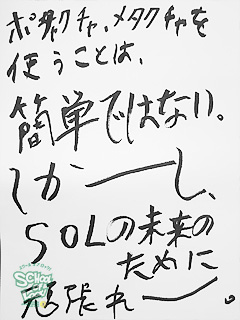 ポタクチャ、メタクチャを
使うことは、
簡単ではない。
しかーーし、
SOLの未来の
ために
頑張れ〜。
SCHOOL
OF LOCK!